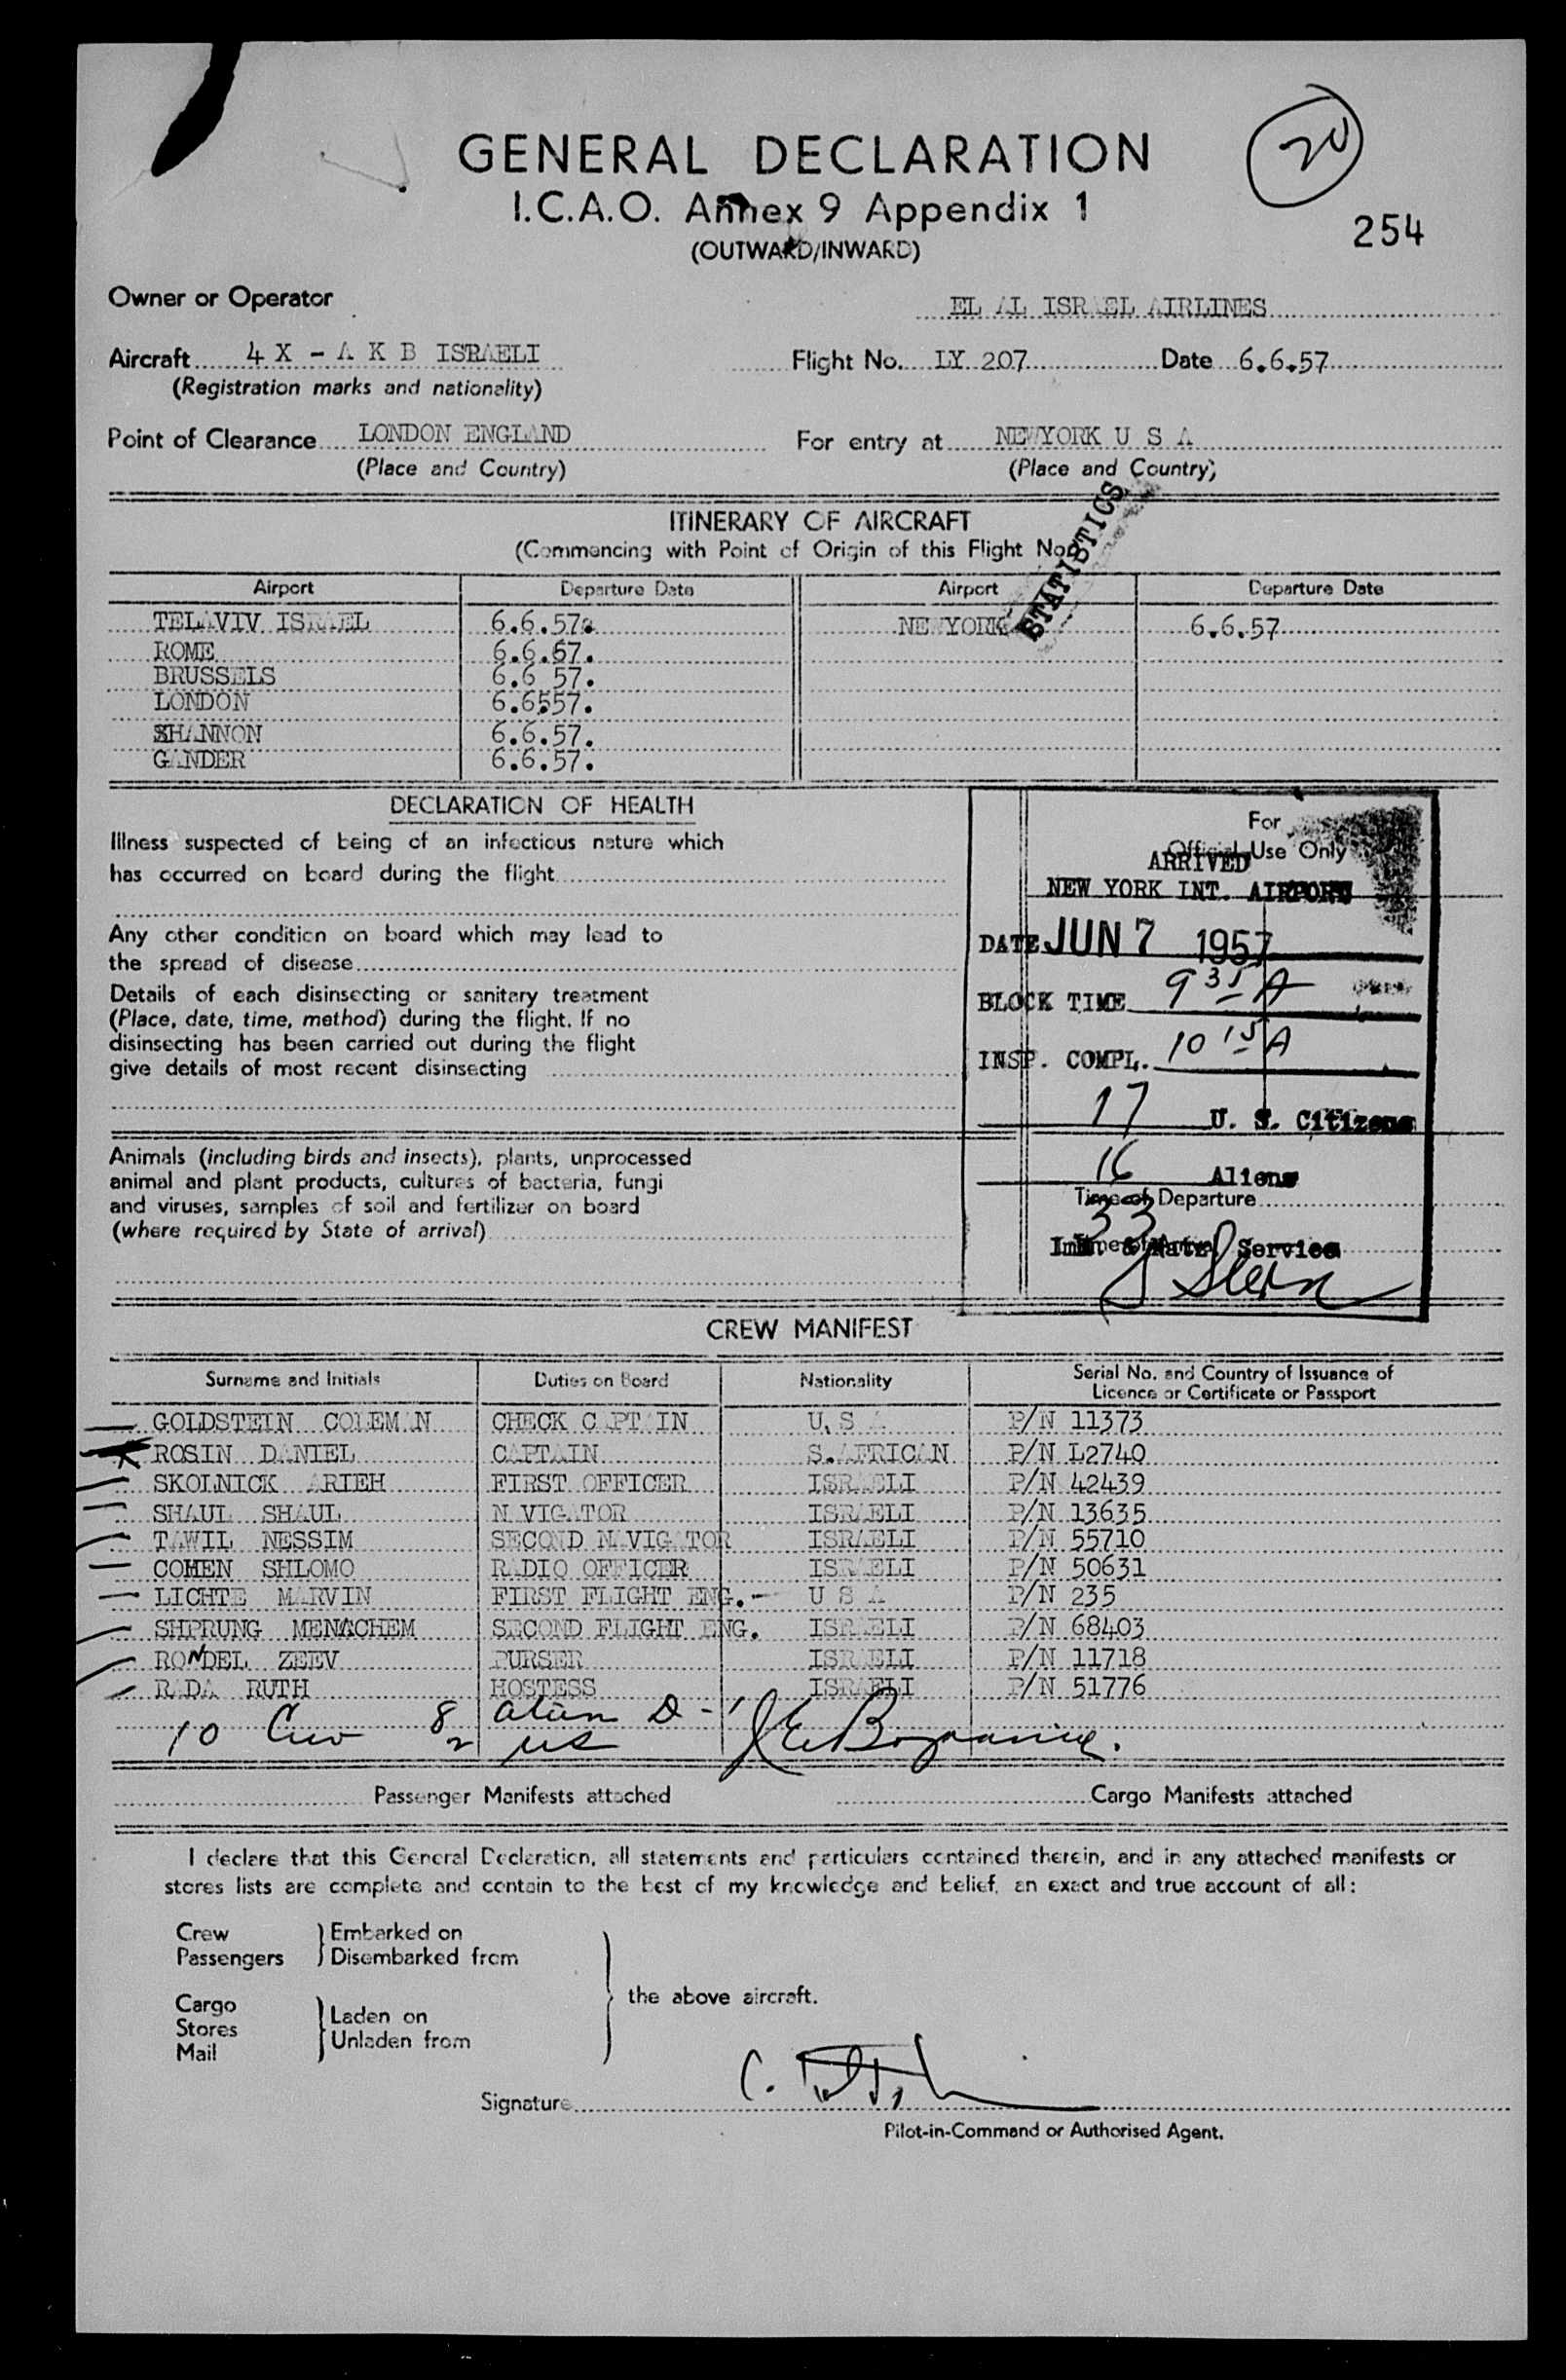 GENERAL DECLARATION
20
I.C.A.O. Annex 9 Appendix 1
254
(OUTWARD/INWARD)
Owner or Operator EL AL ISRAEL AIRLINES
Aircraft 4 X - A K B ISRAELI Flight No. LY 207 Date 6.6.57
(Registration marks and nationality)
Point of Clearance LONDON ENGLAND For entry at NEWYORK U S A
(Place and Country) (Place and Country)
ITINERARY OF AIRCRAFT
(Commencing with Point of Origin of this Flight No.)
STATISTICS
Airport Departure Date Airport Departure Date
TELAVIV ISRAEL 6.6.57. NEWYORK 6.6.57
ROME 6.6.67.
BRUSSELS 6.6 57.
LONDON 6.6557.
SHANNON 6.6.57.
GANDER 6.6.57.
DECLARATION OF HEALTH
Illness suspected of being of an infectious nature which
has occurred on board during the flight
Any other condition on board which may lead to
the spread of disease
Details of each disinsecting or sanitary treatment
(Place, date, time, method) during the flight. If no
disinsecting has been carried out during the flight
give details of most recent disinsecting
Animals (including birds and insects), plants, unprocessed
animal and plant products, cultures of bacteria, fungi
and viruses, samples of soil and fertilizer on board
(where required by State of arrival)
For
Official Use Only
ARRIVED
NEW YORK INT. AIRPORT
DATE JUN 7 1957
BLOCK TIME 9 35 A
INSP. COMPL. 10 15 A
17 U. S. Citizens
16 Aliens
Time of Departure
33
Imm. & Natz. Service
S Stern
CREW MANIFEST
Surname and Initials Duties on Board Nationality Serial No. and Country of Issuance of
Licence or Certificate or Passport
GOLDSTEIN COLEMAN CHECK CAPTAIN U.S A P/N 11373
ROSIN DANIEL CAPTAIN S.AFRICAN P/N L2740
SKOLNICK ARIEH FIRST OFFICER ISRAELI P/N 42439
SHAUL SHAUL NAVIGATOR ISRAELI P/N 13635
TAWIL NESSIM SECOND NAVIGATOR ISRAELI P/N 55710
COHEN SHLOMO RADIO OFFICER ISRAELI P/N 50631
LICHTE MARVIN FIRST FLIGHT ENG. U S A P/N 235
SHPRUNG MENACHEM SECOND FLIGHT ENG. ISRAELI P/N 68403
RONDEL ZEEV PURSER ISRAELI P/N 11718
RADA RUTH HOSTESS ISRAELI P/N 51776
10 Crew 8 alien D - 1
2 US
Passenger Manifests attached Cargo Manifests attached
I declare that this General Declaration, all statements and particulars contained therein, and in any attached manifests or
stores lists are complete and contain to the best of my knowledge and belief, an exact and true account of all:
Crew Embarked on
Passengers Disembarked from
the above aircraft.
Cargo Laden on
Stores Unladen from
Mail
Signature
Pilot-in-Command or Authorised Agent.